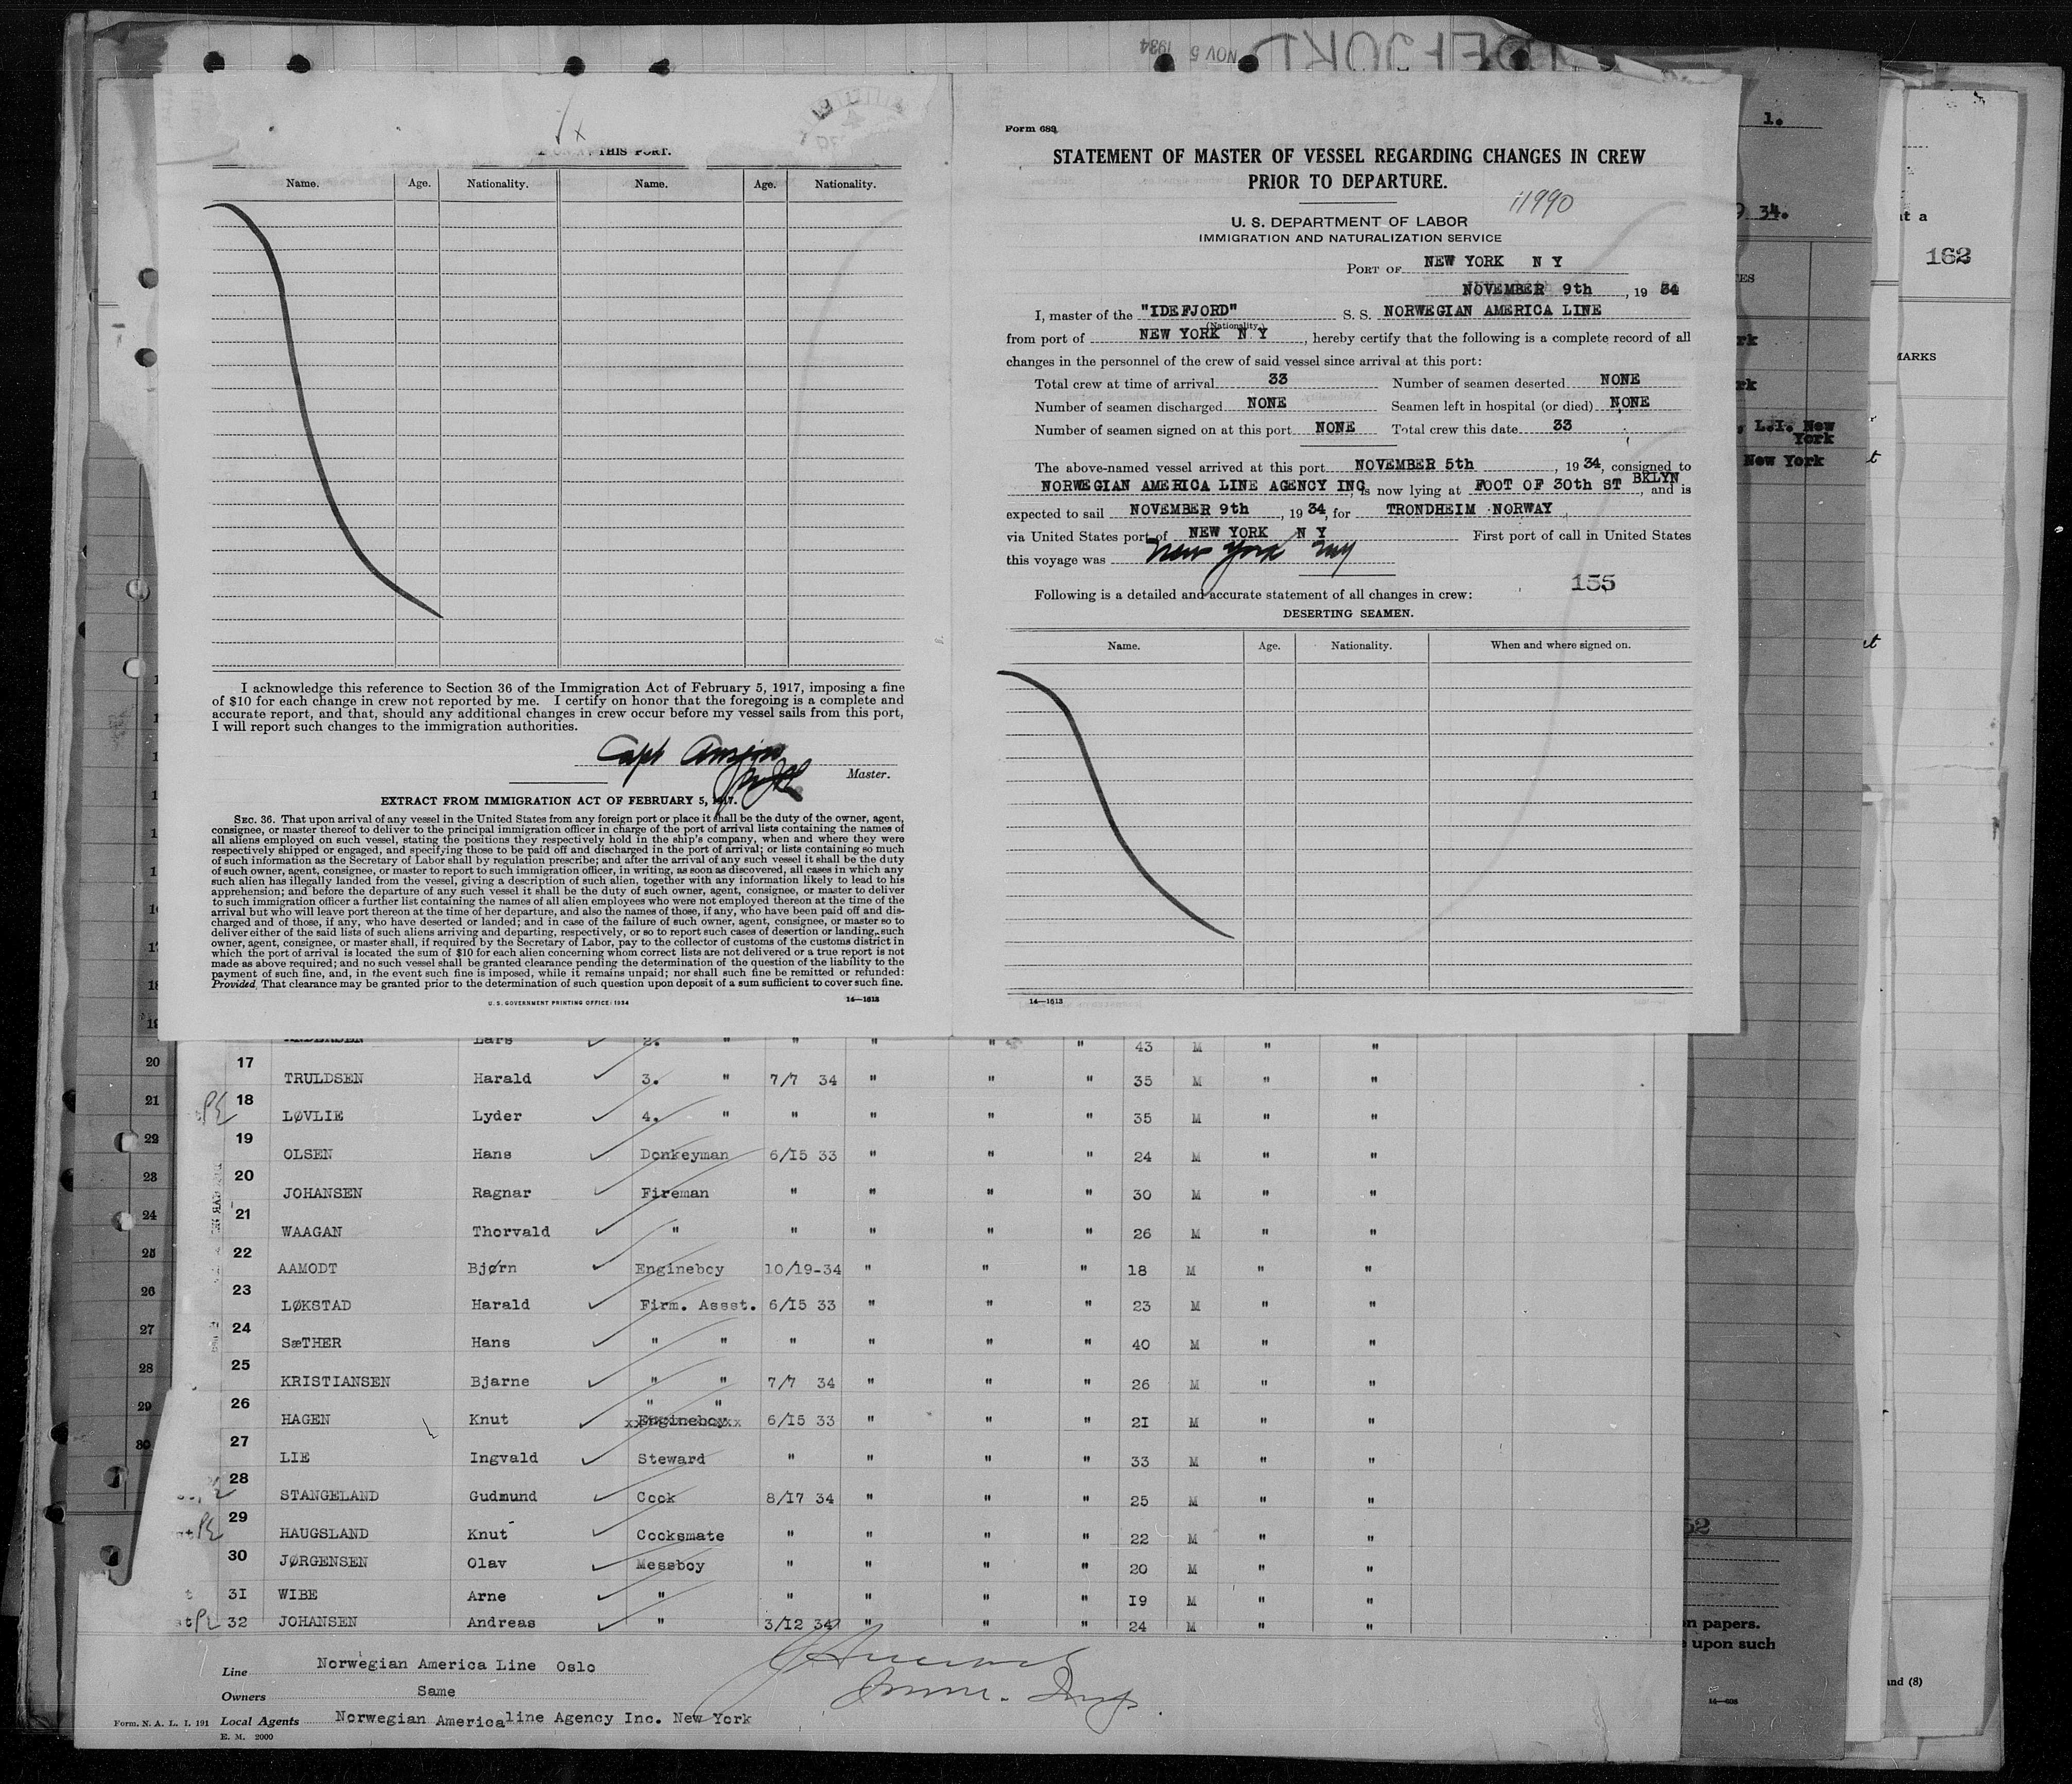 NOV 5 1934
IDEFJORD
THIS PORT.
Name. Age. Nationality. Name. Age. Nationality.
I acknowledge this reference to Section 36 of the Immigration Act of February 5, 1917, imposing a fine
of $10 for each change in crew not reported by me. I certify on honor that the foregoing is a complete and
accurate report, and that, should any additional changes in crew occur before my vessel sails from this port,
I will report such changes to the immigration authorities.
Capt
Master.
EXTRACT FROM IMMIGRATION ACT OF FEBRUARY 5, 1917.
SEC. 36. That upon arrival of any vessel in the United States from any foreign port or place it shall be the duty of the owner, agent,
consignee, or master thereof to deliver to the principal immigration officer in charge of the port of arrival lists containing the names of
all aliens employed on such vessel, stating the positions they respectively hold in the ship's company, when and where they were
respectively shipped or engaged, and specifying those to be paid off and discharged in the port of arrival; or lists containing so much
of such information as the Secretary of Labor shall by regulation prescribe; and after the arrival of any such vessel it shall be the duty
of such owner, agent, consignee, or master to report to such immigration officer, in writing, as soon as discovered, all cases in which any
such alien has illegally landed from the vessel, giving a description of such alien, together with any information likely to lead to his
apprehension; and before the departure of any such vessel it shall be the duty of such owner, agent, consignee, or master to deliver
to such immigration officer a further list containing the names of all alien employees who were not employed thereon at the time of the
arrival but who will leave port thereon at the time of her departure, and also the names of those, if any, who have been paid off and dis-
charged and of those, if any, who have deserted or landed; and in case of the failure of such owner, agent, consignee, or master so to
deliver either of the said lists of such aliens arriving and departing, respectively, or so to report such cases of desertion or landing, such
owner, agent, consignee, or master shall, if required by the Secretary of Labor, pay to the collector of customs of the customs district in
which the port of arrival is located the sum of $10 for each alien concerning whom correct lists are not delivered or a true report is not
made as above required; and no such vessel shall be granted clearance pending the determination of the question of the liability to the
payment of such fine, and, in the event such fine is imposed, while it remains unpaid; nor shall such fine be remitted or refunded:
Provided, That clearance may be granted prior to the determination of such question upon deposit of a sum sufficient to cover such fine.
U. S. GOVERNMENT PRINTING OFFICE: 1934 14—1613
Form 689
STATEMENT OF MASTER OF VESSEL REGARDING CHANGES IN CREW
PRIOR TO DEPARTURE.
11990
U. S. DEPARTMENT OF LABOR
IMMIGRATION AND NATURALIZATION SERVICE
PORT OF NEW YORK N Y
NOVEMBER 9th, 19 34
I, master of the "IDEFJORD" S. S. NORWEGIAN AMERICA LINE
(Nationality.)
from port of NEW YORK N Y, hereby certify that the following is a complete record of all
changes in the personnel of the crew of said vessel since arrival at this port:
Total crew at time of arrival 33 Number of seamen deserted NONE
Number of seamen discharged NONE Seamen left in hospital (or died) NONE
Number of seamen signed on at this port NONE Total crew this date 33
The above-named vessel arrived at this port NOVEMBER 5th, 19 34, consigned to
NORWEGIAN AMERICA LINE AGENCY INC, is now lying at FOOT OF 30th ST BKLYN, and is
expected to sail NOVEMBER 9th, 19 34, for TRONDHEIM NORWAY
via United States port of NEW YORK N Y First port of call in United States
this voyage was New York NY
155
Following is a detailed and accurate statement of all changes in crew:
DESERTING SEAMEN.
Name. Age. Nationality. When and where signed on.
14—1613
1.
34.
162
MARKS
L.I. New
York
New York
ANDERSEN Lars 2. " " " " " 43 M " "
17 TRULDSEN Harald 3. " 7/7 34 " " " 35 M " "
18 LØVLIE Lyder 4. " " " " " 35 M " "
19 OLSEN Hans Donkeyman 6/15 33 " " " 24 M " "
20 JOHANSEN Ragnar Fireman " " " " 30 M " "
21 WAAGAN Thorvald " " " " " 26 M " "
22 AAMODT Bjørn Engineboy 10/19-34 " " " 18 M " "
23 LØKSTAD Harald Firm. Assst. 6/15 33 " " " 23 M " "
24 SæTHER Hans " " " " " " 40 M " "
25 KRISTIANSEN Bjarne " " 7/7 34 " " " 26 M " "
" "
26 HAGEN Knut xxEngineboyxx 6/15 33 " " " 21 M " "
27 LIE Ingvald Steward " " " " 33 M " "
28 STANGELAND Gudmund Cook 8/17 34 " " " 25 M " "
29 HAUGSLAND Knut Cooksmate " " " " 22 M " "
30 JØRGENSEN Olav Messboy " " " " 20 M " "
31 WIBE Arne " " " " " 19 M " "
32 JOHANSEN Andreas " 3/12 34 " " " 24 M " "
Line Norwegian America Line Oslo
Owners Same
Local Agents Norwegian America line Agency Inc. New York
Form. N. A. L. I. 191
E. M. 2000
Imm. Insp.
20
21
22
23
24
25
26
27
28
29
30
n papers.
upon such
and (8)